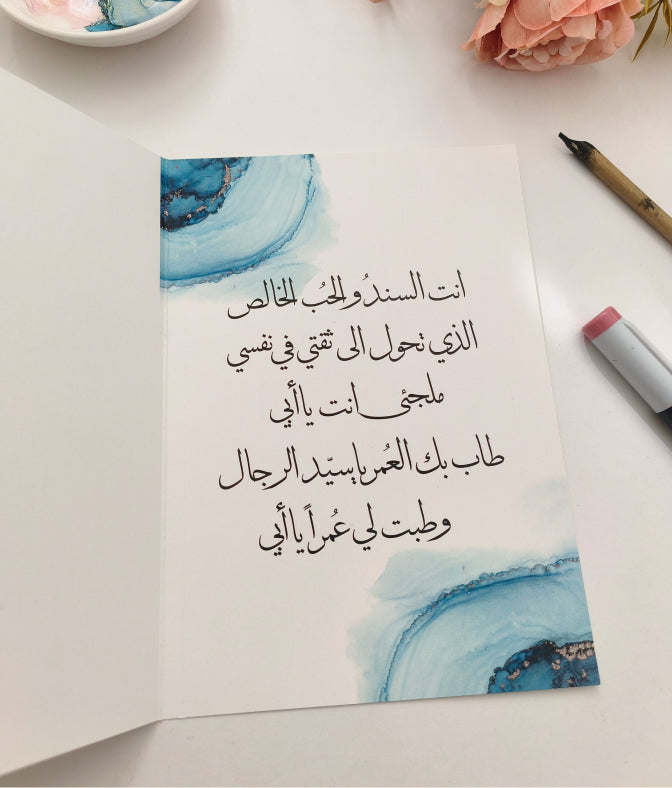 انت السندُ والحُب الخالص
الذي تحول الى ثقتي في نفسي
ملجئي انت يا أبي
طاب بك العُمر يا سيّد الرجال
وطبت لي عُمراً يا أبي